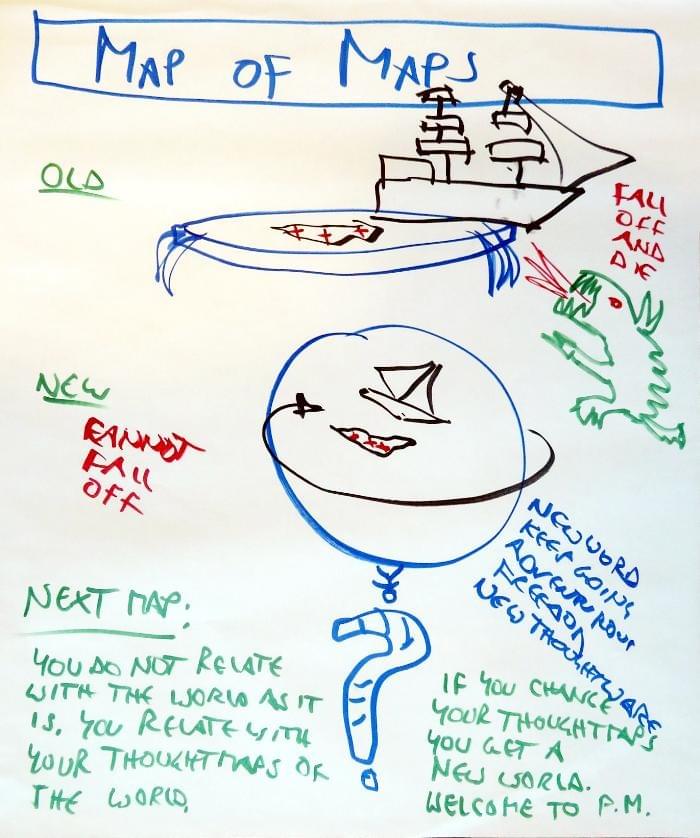 MAP OF MAPS
OLD
FALL
OFF
AND
DIE
NEW
CANNOT
FALL
OFF
NEW WORD
KEEP GOING
ADVENTUROUS
FREEDOM
NEW THOUGHTWARE
NEXT MAP:
YOU DO NOT RELATE
WITH THE WORLD AS IT
IS. YOU RELATE WITH
YOUR THOUGHTMAPS OF
THE WORLD.
?
IF YOU CHANGE
YOUR THOUGHTMAPS
YOU GET A
NEW WORLD.
WELCOME TO P.M.